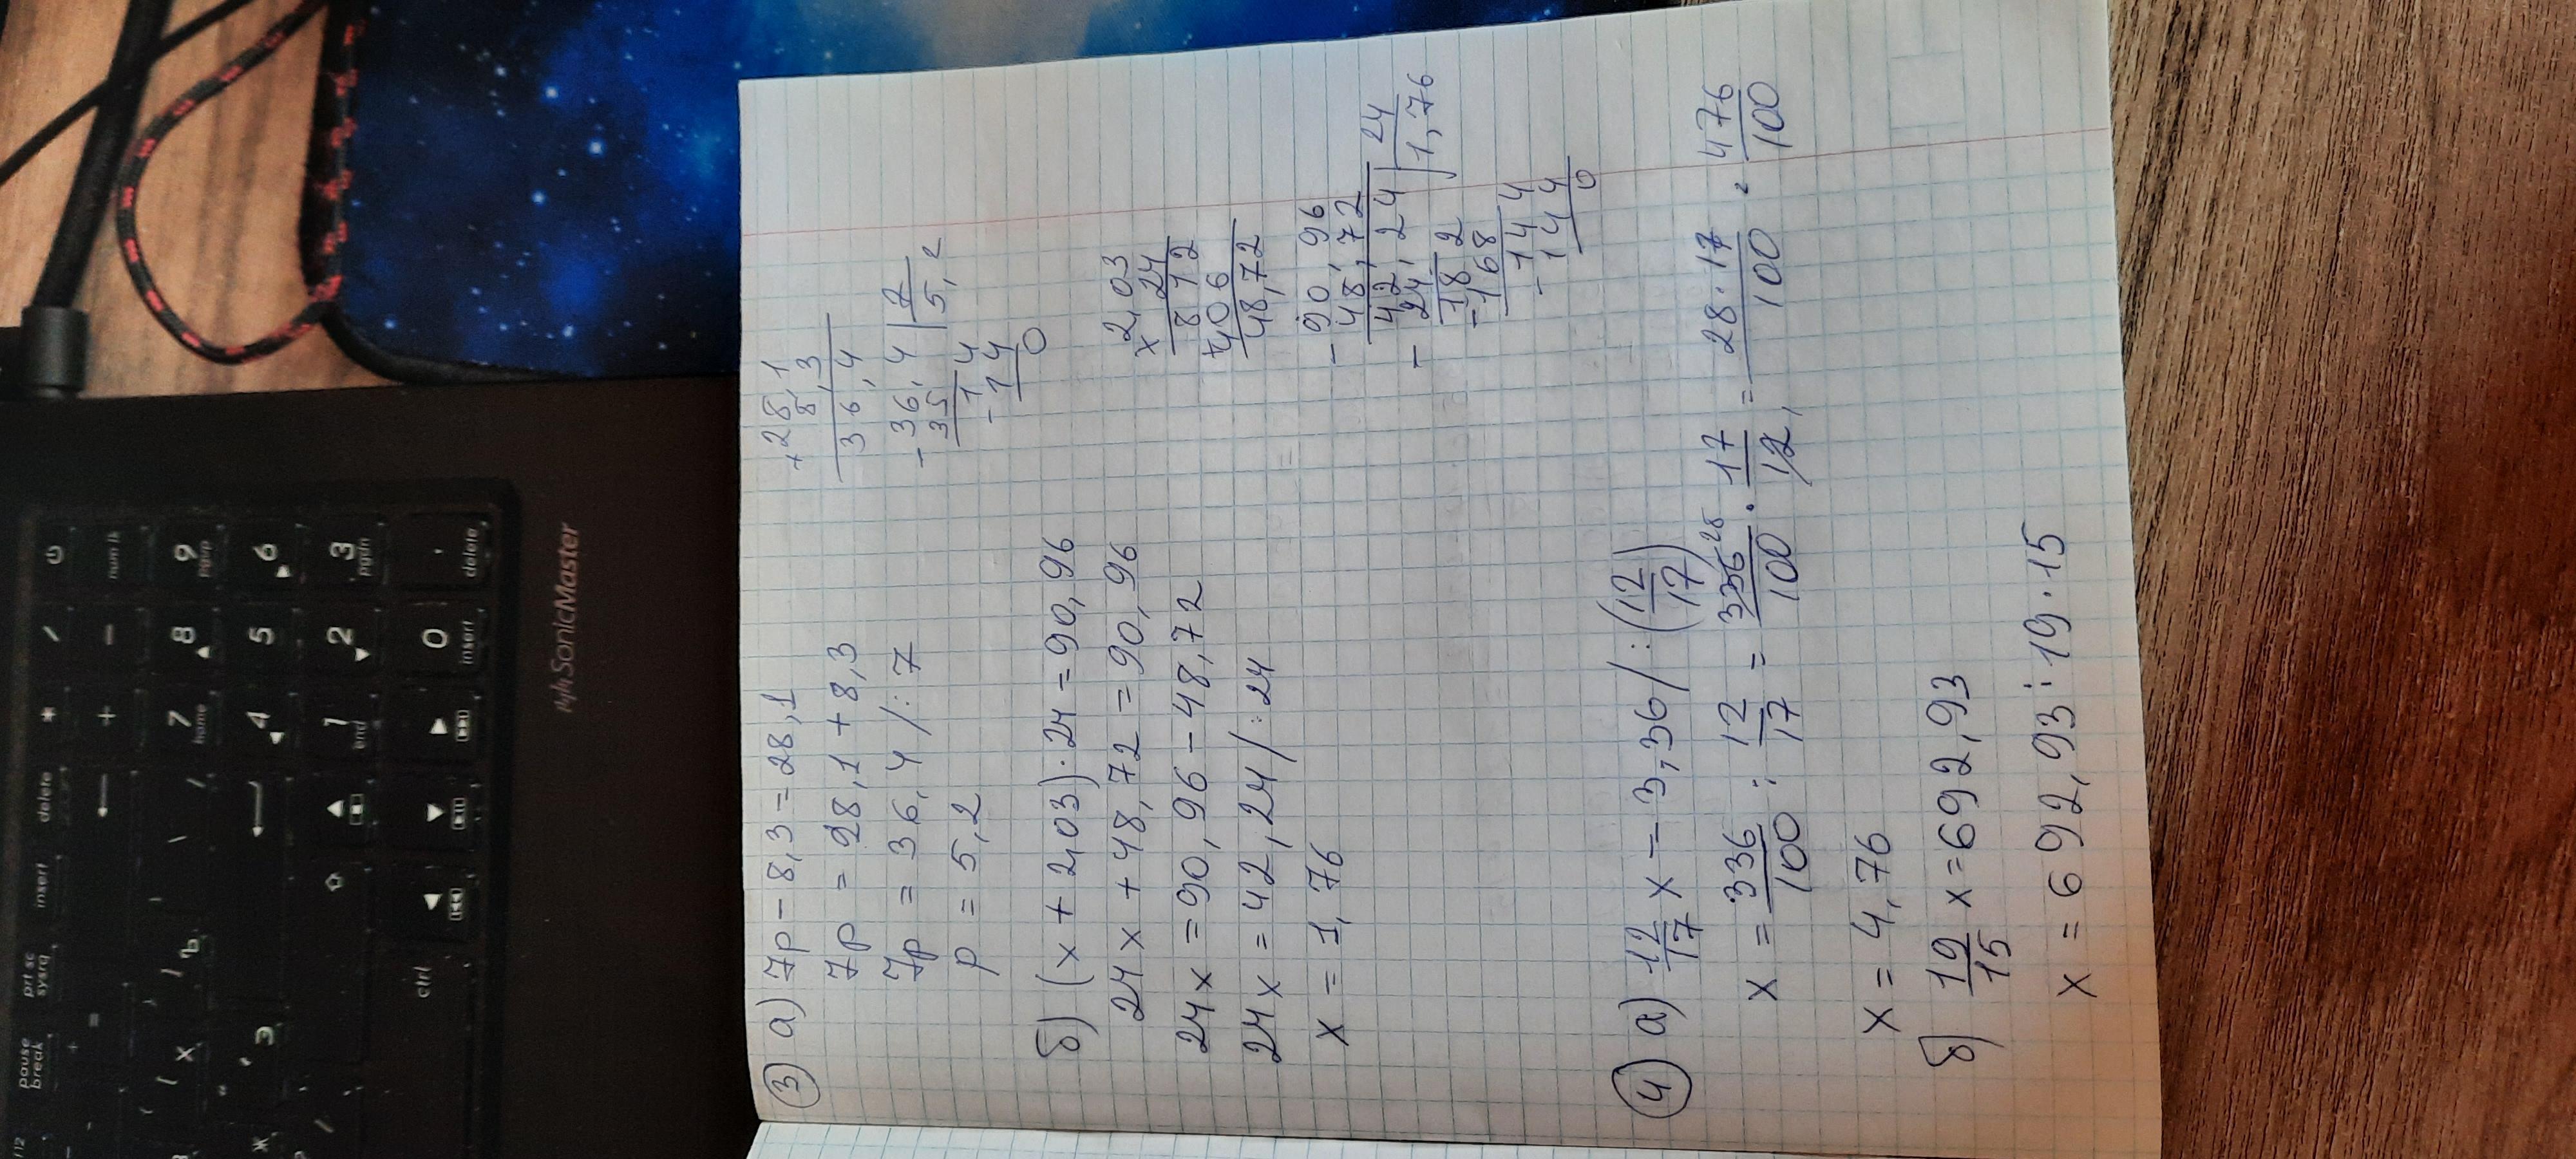 ③ а) 7p - 8,3 = 28,1
7p = 28,1 + 8,3
7p = 36,4 /: 7
p = 5,2
+28,1
8,3
36,4
- 36,4 | 7
35 | 5,2
- 14
14
0
б) (x + 2,03) · 24 = 90,96
24x + 48,72 = 90,96
24x = 90,96 - 48,72
24x = 42,24 /: 24
x = 1,76
x 2,03
24
812
+406
48,72
- 90,96
48,72
42,24 | 24
- 24 | 1,76
182
- 168
- 144
144
0
④ а) 12/17 x = 3,36 /: (12/17)
x = 336/100 : 12/17 = 336 28/100 · 17/12 1 = 28·17/100 = 476/100
x = 4,76
б) 19/15 x = 692,93
x = 692,93 : 19 · 15
SonicMaster
pause break
prt sc sysrq
insert
delete
* / ⏻
num lk
+ -
7 home
8
9 pgup
4
5
6
1 end
2
3 pgdn
ctrl
0 insert
. delete
Х
Ъ
Ж
Э